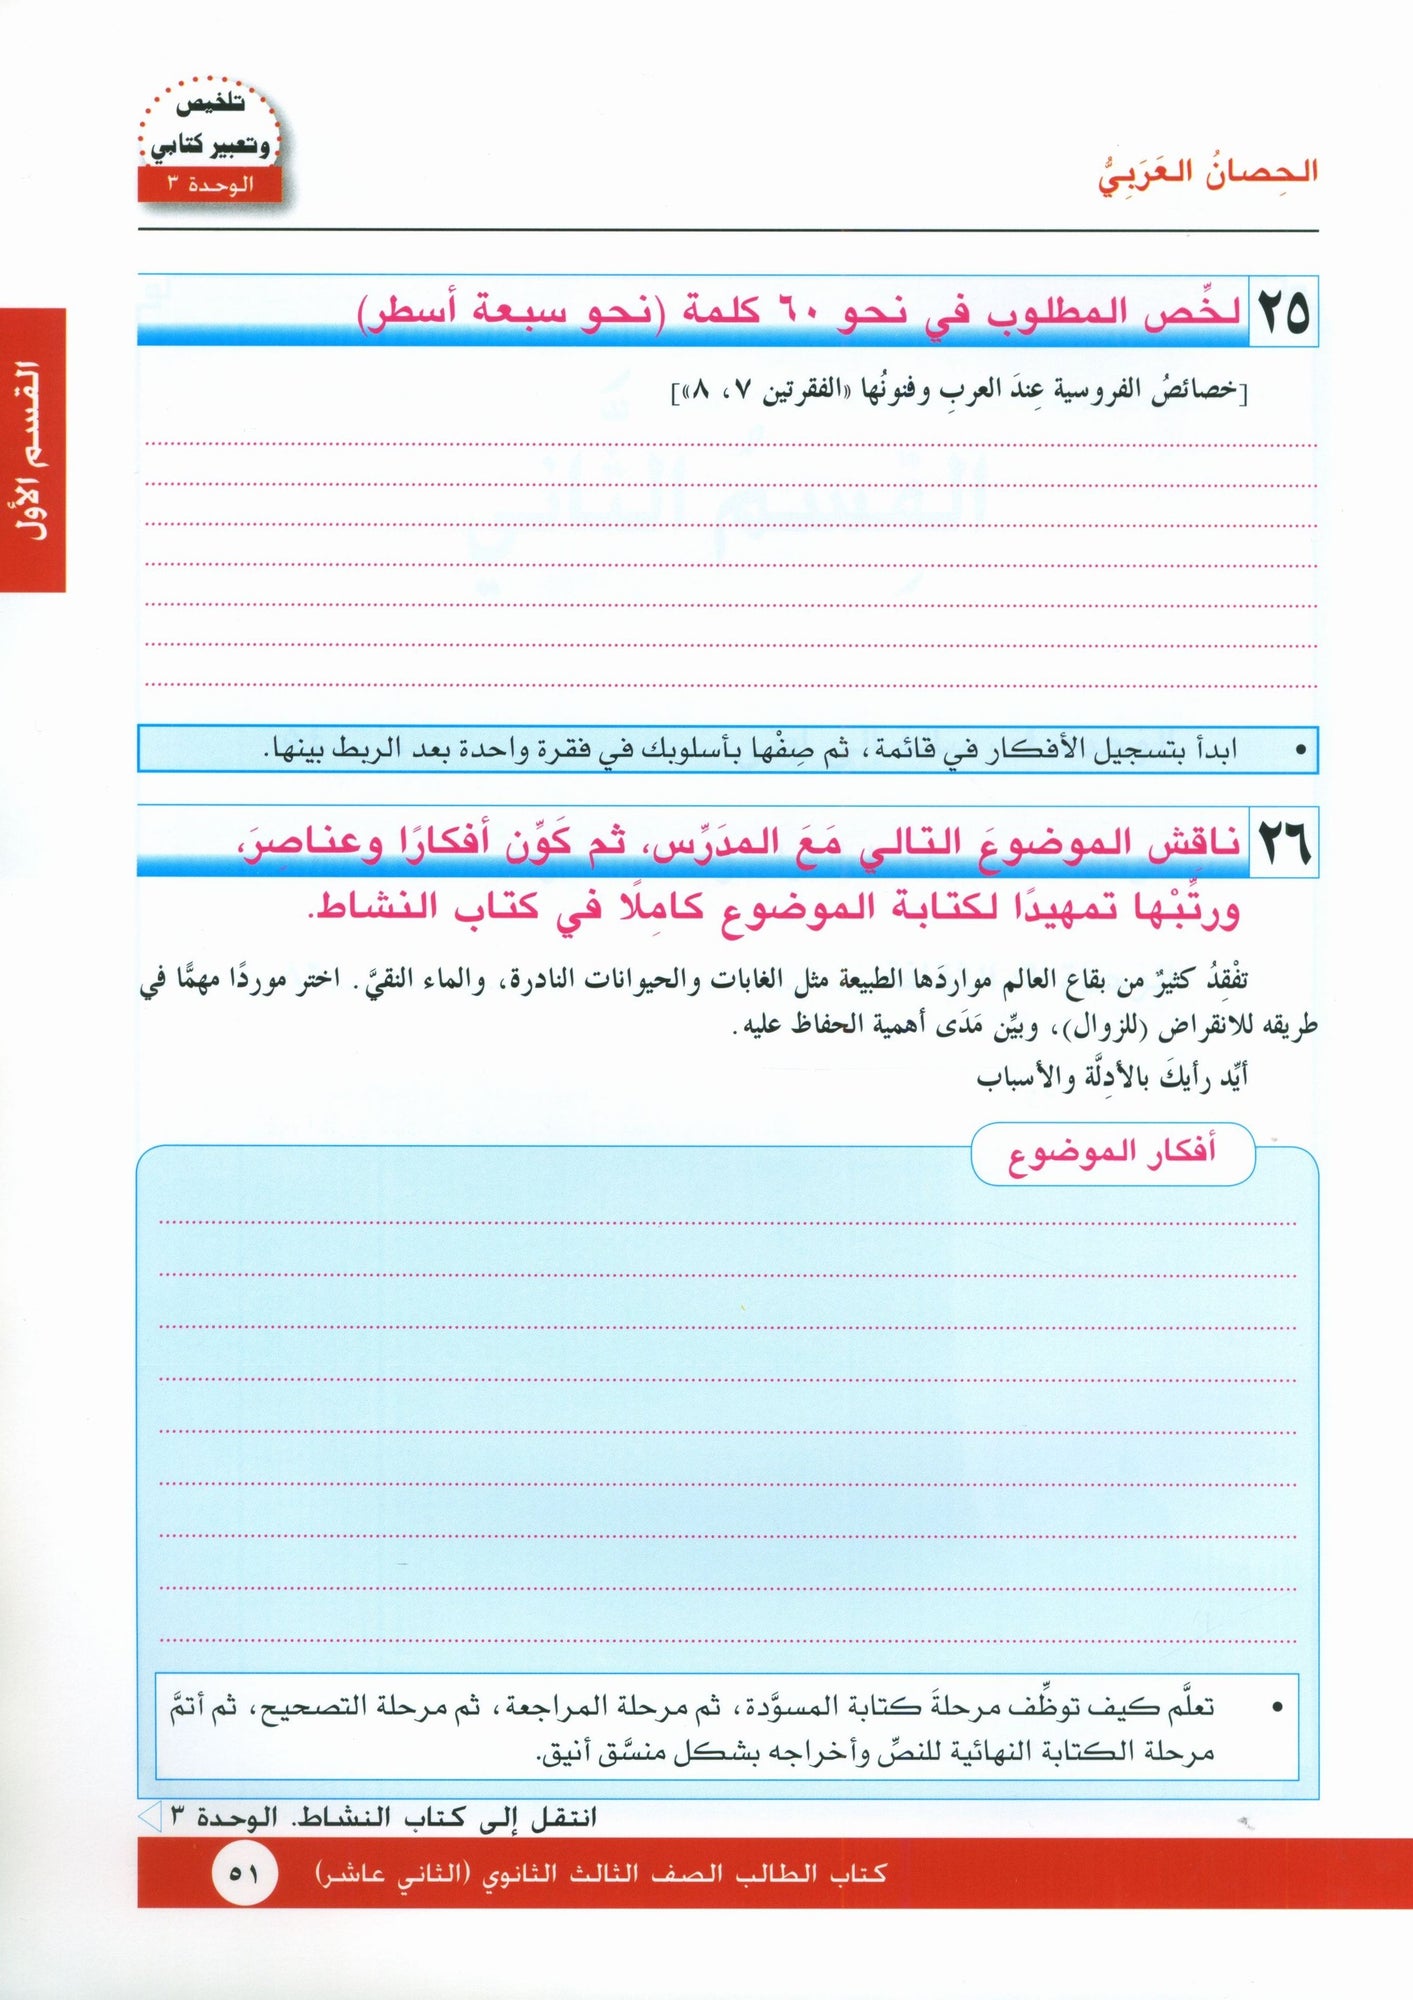 تلخيص
وتعبير كتابي
الوحدة ٣
الحِصانُ العَرَبِيُّ
القسم الأول
٢٥ لخِّص المطلوب في نحو ٦٠ كلمة (نحو سبعة أسطر)
[خصائصُ الفروسية عِندَ العربِ وفنونُها «الفقرتين ٧، ٨»]
• ابدأ بتسجيل الأفكار في قائمة، ثم صِفْها بأسلوبك في فقرة واحدة بعد الربط بينها.
٢٦ ناقِش الموضوعَ التالي مَعَ المدَرِّس، ثم كَوِّن أفكارًا وعناصِرَ،
ورتِّبْها تمهيدًا لكتابة الموضوع كامِلًا في كتاب النشاط.
تفْقِدُ كثيرٌ من بقاع العالم مواردَها الطبيعة مثل الغابات والحيوانات النادرة، والماء النقيَّ. اختر موردًا مهمًّا في
طريقه للانقراض (للزوال)، وبيِّن مَدَى أهمية الحفاظ عليه.
أيِّد رأيكَ بالأدِلَّة والأسباب
أفكار الموضوع
• تعلَّم كيف توظِّف مرحلةَ كتابة المسوَّدة، ثم مرحلة المراجعة، ثم مرحلة التصحيح، ثم أتمَّ
مرحلة الكتابة النهائية للنصِّ وأخراجه بشكل منسَّق أنيق.
انتقل إلى كتاب النشاط. الوحدة ٣
كتاب الطالب الصف الثالث الثانوي (الثاني عاشر)
٥١